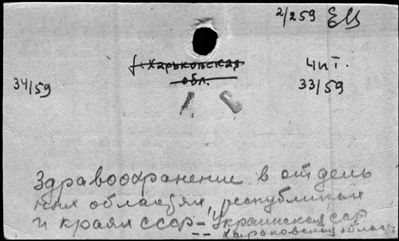 2/259 ЕЦ
Харьковская
обл.
Чит.
34/59
33/59
Здравоохранение в отдель
ных областях, республиках
и краях СССР – Украинская ССР
-- Харьковская область